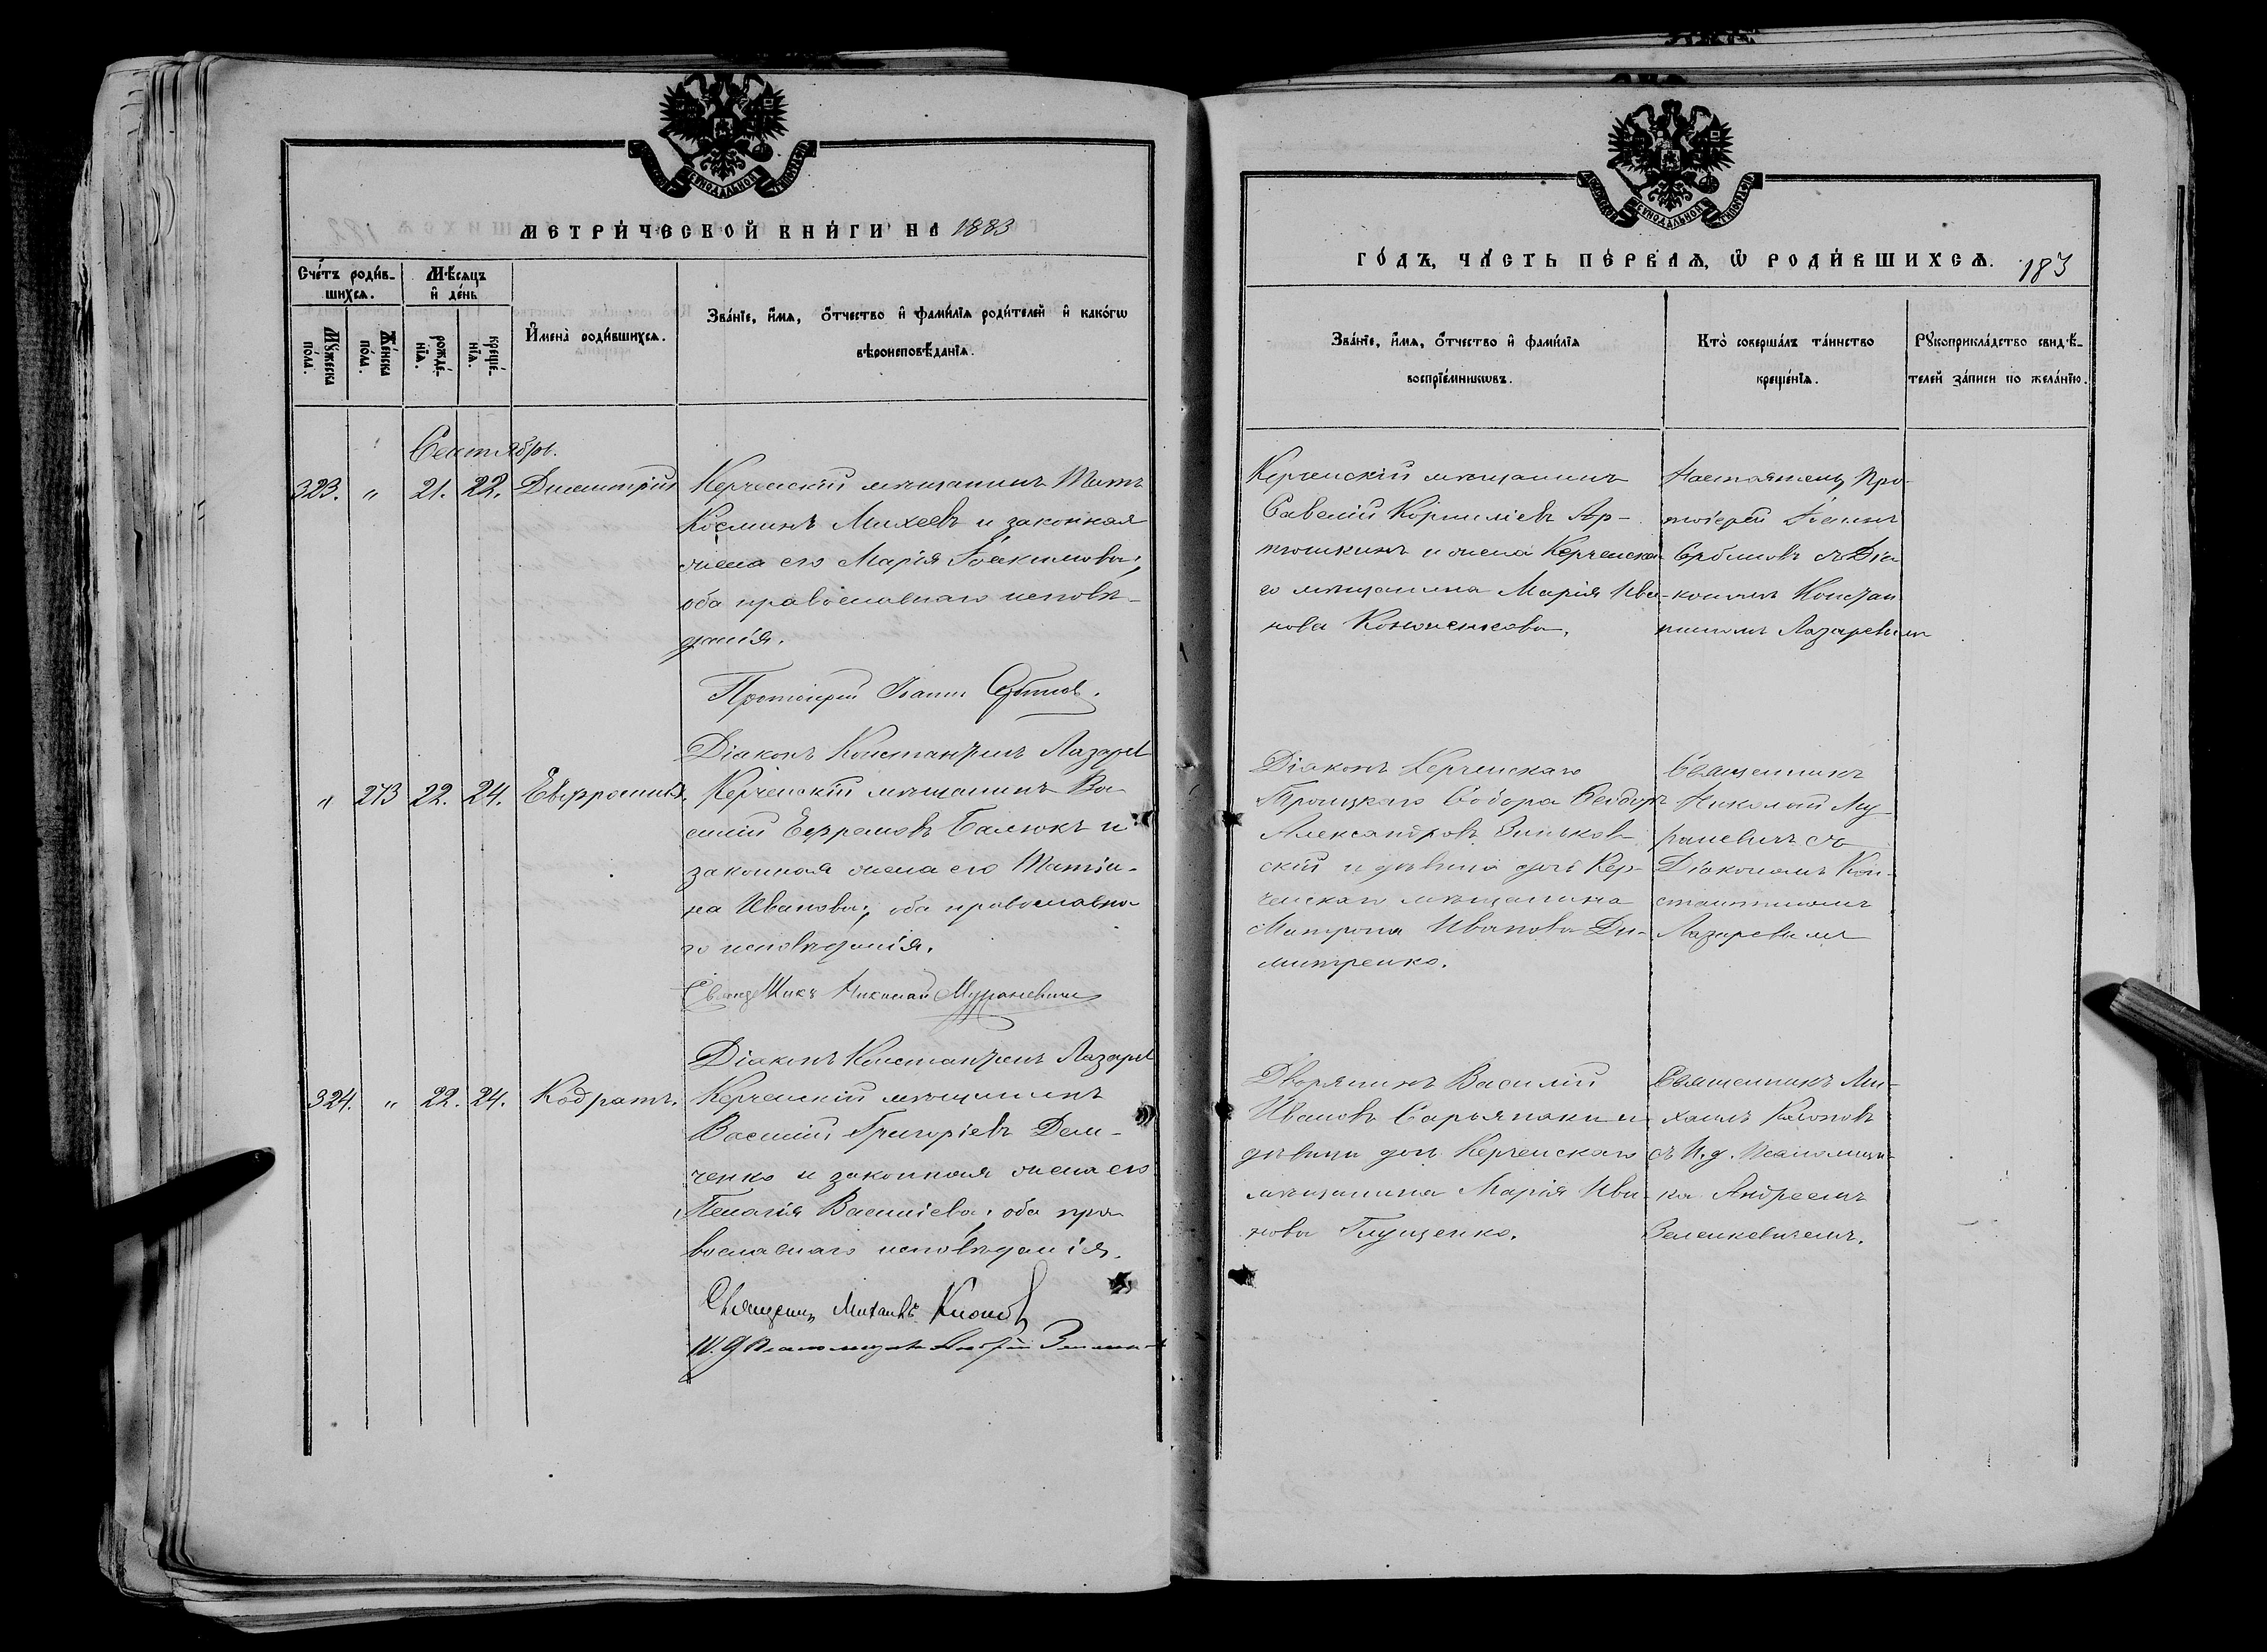 МЕТРИЧЕСКОЙ КНИГИ НА 1883
Счетъ родив-
шихся.
Мѣсяцъ
и день
Мужеска
пола.
Женска
пола.
рожде-
нія.
креще-
нія.
Имена родившихся.
Званіе, имя, отчество и фамилія родителей и какогѡ
вѣроисповѣданія.
Сентябрь.
323. " 21. 22. Димитрій
Керченскій мѣщанинъ Титъ
Косминъ Михеевъ и законная
жена его Марія Іоакимова,
оба православнаго исповѣ-
данія.
Протоіерей Іоаннъ Сербиновъ.
Діаконъ Константинъ Лазарев
" 273 22. 24. Евфросинія.
Керченскій мѣщанинъ Ва-
силій Ефремовъ Балюкъ и
законная жена его Татіа-
на Иванова, оба православна-
го исповѣданія.
Священникъ Николай Мураневичъ
Діаконъ Константинъ Лазарев
324. " 22. 24. Кодратъ.
Керченскій мѣщанинъ
Василій Григоріевъ Дем-
ченко и законная жена его
Пелагія Василіева, оба пра-
вославнаго исповѣданія.
Священ. Михаилъ Клоповъ
И. д. Псаломщика Андрей
ГОДЪ, ЧАСТЬ ПЕРВАЯ, Ѡ РОДИВШИХСЯ. 183
Званіе, имя, отчество и фамилія
воспріемниковъ.
Кто совершалъ таинство
крещенія.
Рукоприкладство свидѣ-
телей записи по желанію.
Керченскій мѣщанинъ
Савелій Корниліевъ Ар-
тюшкинъ и жена Керченска-
го мѣщанина Марія Ива-
нова Кононенкова.
Настоятель Про-
тоіерей Іоаннъ
Сербиновъ съ Діа-
кономъ Констан
тиномъ Лазаревымъ
Діаконъ Керченскаго
Троицкаго Собора Ѳеодоръ
Александровъ Зиньков-
скій и дѣвица дочь Кер-
ченскаго мѣщанина
Матрона Иванова Ди-
митренко.
Священникъ
Николай Му
раневичъ съ
Діакономъ Кон-
стантиномъ
Лазаревымъ
Дворянинъ Василій
Ивановъ Сарыянаки и
дѣвица дочь Керченскаго
мѣщанина Марія Ива-
нова Глущенко.
Священникъ Ми-
хаилъ Клоповъ
съ И. д. Псаломщи-
ка Андреемъ
Зеленкевичемъ.